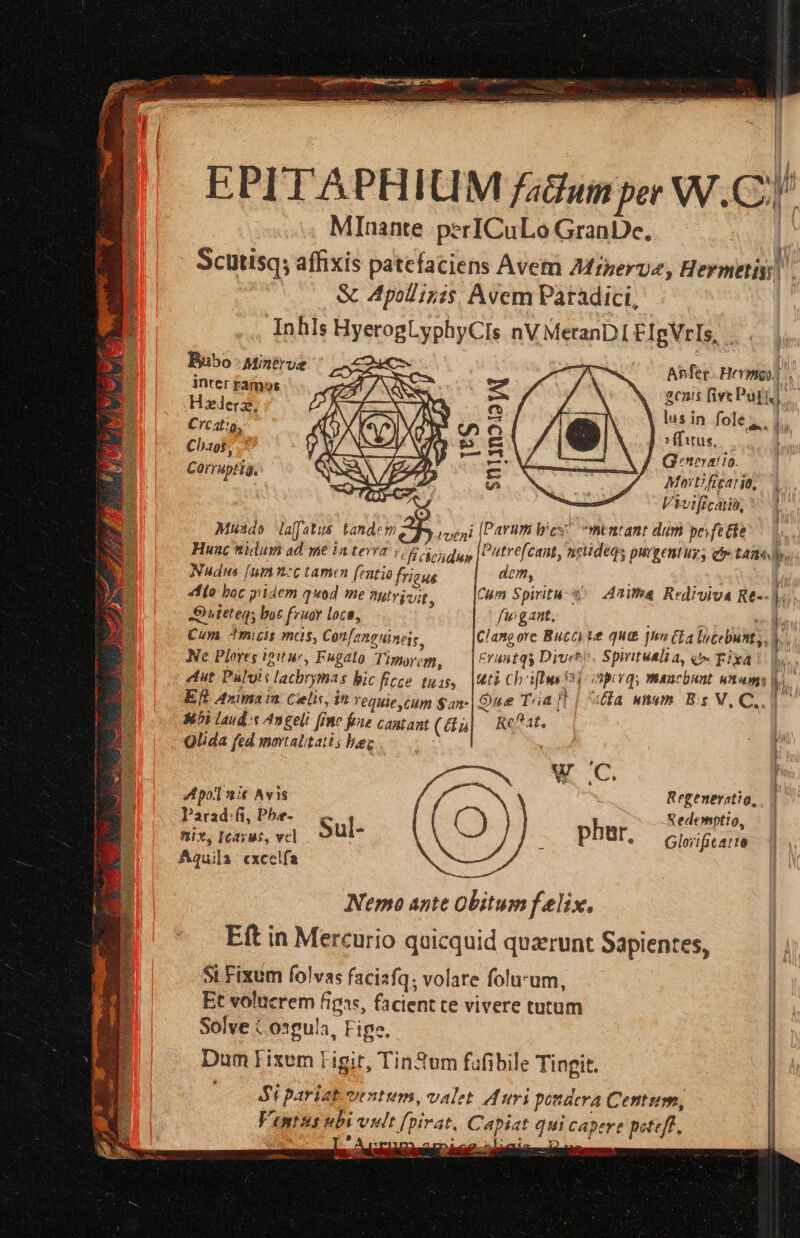 EPITAPHIUM factum per W.C.
MInante perICuLo GranDe,
Scutisq; affixis patefaciens Avem Minervæ, Hermetis
& Apollinis, Avem Paradici,
InhIs HyerogLyphyCIs nV MeranDI FIgVrIs,
Bubo Minervæ
inter ramos
Hæderæ,
Creatio,
Chaos,
Corruptio.
Sal
Mercurius
Anser Hermo
genis five Pull
lus in fole
Generatio.
Mortificatio,
Vivificatio,
Mundo laſſatus tandem
Hunc nidum ad me in terra
Nudus ſum nec tamen ſentio frigus
Allo hoc pridem quod me nutrivit,
Quieteq; hoc fruor loco,
Cum Amicis meis, Conſanguineis,
Ne Plores igitur, Fugato Timorem,
Aut Pulvis lachrymas hic ſicce tuas,
Eſt Anima in Cælis, in requie, cum San-
Ubi laudes Angeli ſine fine cantant
Olida ſed mortalitatis hæc
Parum
Putreſcant, netideq; purgentur, & tan
dem,
Cum Spiritu Anima Rediviva Re--
ſurgant.
Clangore Buccinæ quæ juncta lucebunt,
Eruntq; Spiritualia, & Fixa
manebunt unum
Que unum V.C..
Reſtat.
W. C.
Apollnis Avis
Paradiſi, Phe-
nix, Icarus, vel
Aquila excelſa
Sul-
phur.
Regeneratio,
Redemptio,
Glorificatio
Nemo ante obitum fælix.
Eſt in Mercurio quicquid quærunt Sapientes,
Si Fixum ſolvas faciaſq; volare ſolutum,
Et volucrem figas, facient te vivere tutum
Solve Coagula, Fige.
Dum Fixum Figit, Tinctum fuſibile Tingit.
Si pariat ventum, valet Auri pondera Centum,
Ventus ubi vult ſpirat. Capiat qui capere poteſt.